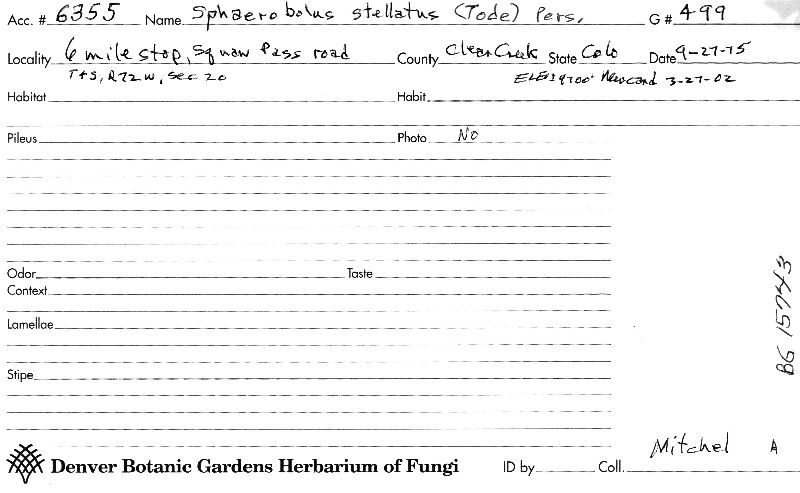 Acc. # 6355 Name Sphaerobolus stellatus (Tode) Pers. G # 499
Locality 6 mile stop, Squaw Pass road County Clear Creek State Colo Date 9-27-75
T4S, R72W, Sec 20 9700' New card 3-27-02
Habitat Habit
Pileus Photo No
Odor Taste
Context
Lamellae
Stipe
BG 15743
Denver Botanic Gardens Herbarium of Fungi ID by Coll. Mitchel A